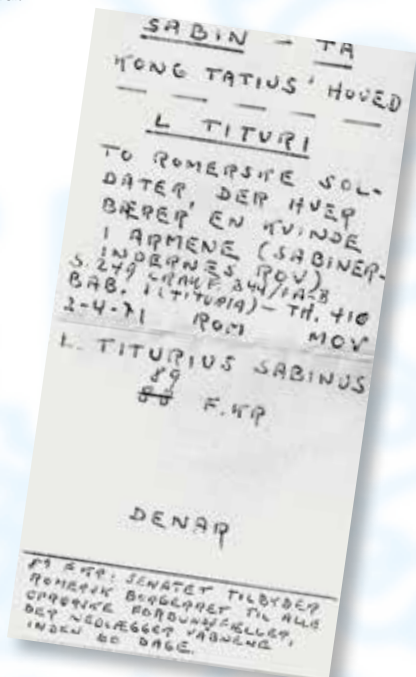 SABIN - TA
KONG TATIUS' HOVED
L TITURI
TO ROMERSKE SOL-
DATER, DER HVER
BÆRER EN KVINDE
I ARMENE (SABINER-
INDERNES ROV)
S. 249 CRAWF. 344/1A-B
BAB. 1 (TITURIA) - TH. 410
2-4-71 ROM MOV
L. TITURIUS SABINUS
89
88 F.KR
DENAR
89 F.KR: SENATET TILBYDER
ROMERSK BORGERRET TIL ALLE
OPRØRSKE FORBUNDSFÆLLER,
DER NEDLÆGGER VÅBNENE
INDEN 60 DAGE.